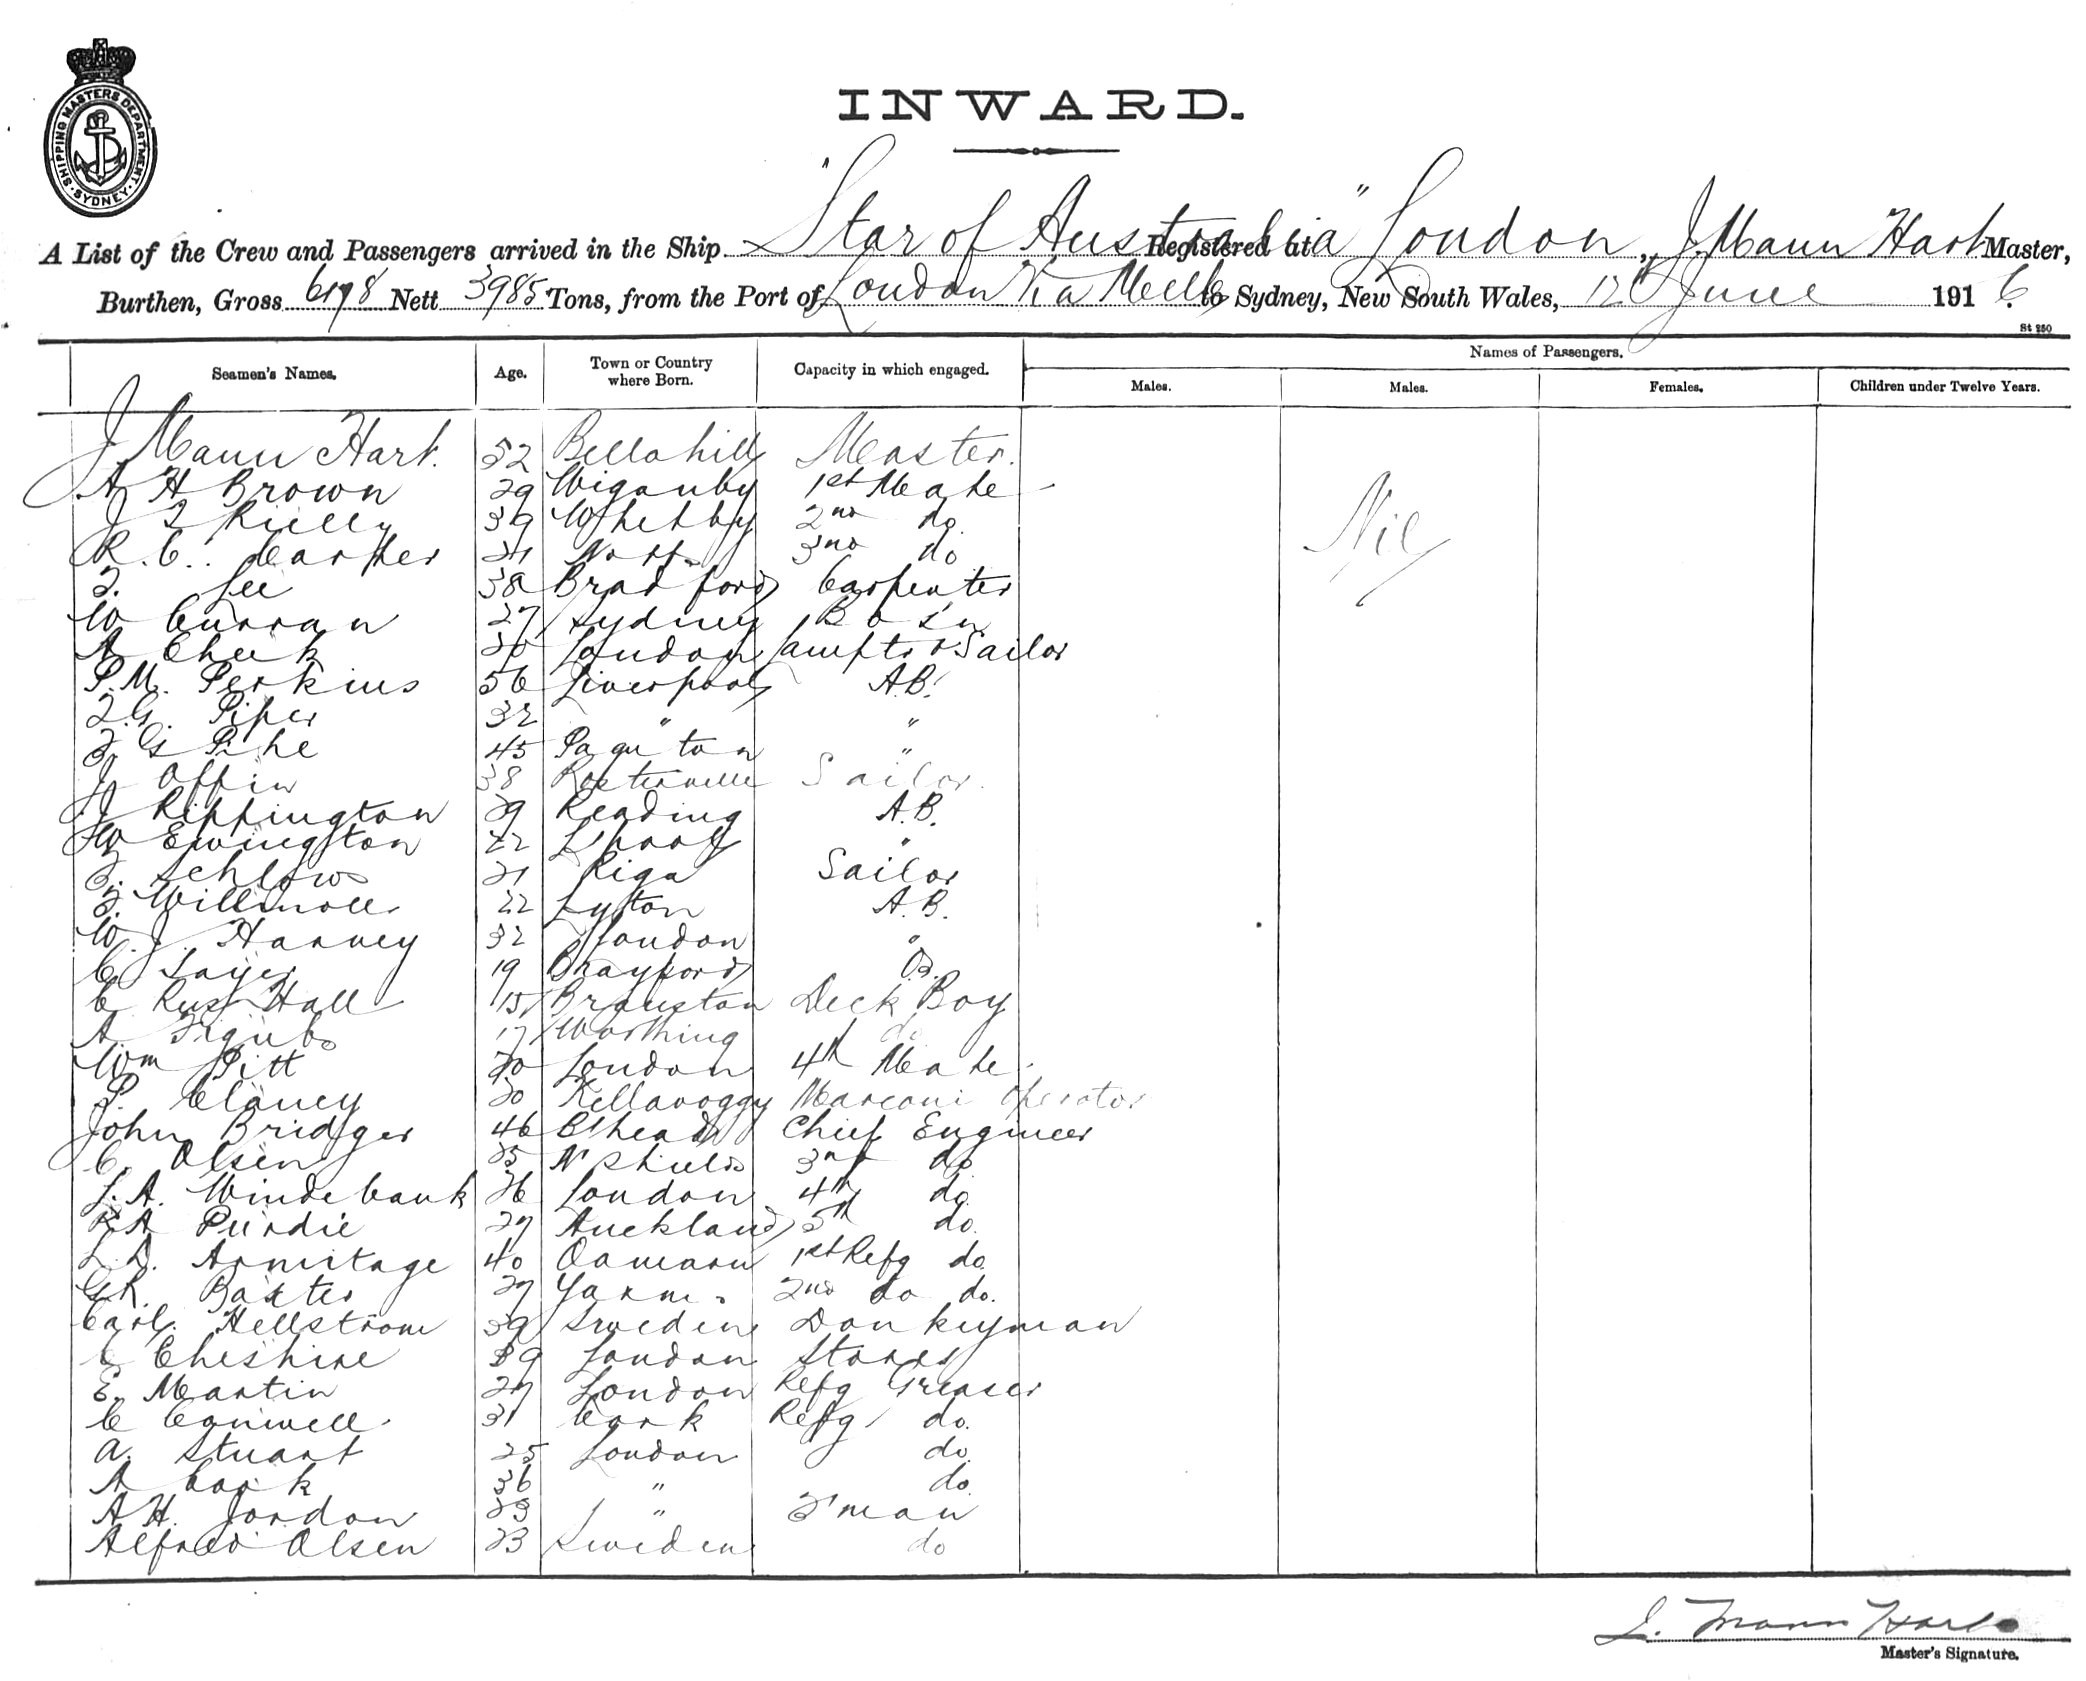 SHIPPING MASTERS DEPARTMENT · SYDNEY ·
INWARD.
A List of the Crew and Passengers arrived in the Ship "Star of Australia" Registered at London, J. Mann Hart Master,
Burthen, Gross 6198 Nett 3985 Tons, from the Port of London Via Melb to Sydney, New South Wales, 12 June 1916
St 250
Seamen's Names. Age. Town or Country where Born. Capacity in which engaged. Names of Passengers.
Males. Males. Females. Children under Twelve Years.
J Mann Hart. 52 Bellahill Master.
A H Brown 29 Wiganby 1st Mate
Nil
J Rielly 39 Whitby 2nd do
R. C. 21 3rd do
Lee 38 Bradford Carpenter
W Curran 27 Sydney Bosn
A Cheek London Lamptr & Sailor
P.M. Perkins 56 Liverpool A.B.
F.G. Piper 32 " "
F G Pike 45 Paignton "
J Offin 38 Sailor.
J Rippington 29 Reading A.B.
W Ewington 22 L'pool "
Schlows 21 Riga Sailor
22 Lyton A.B.
W. J. Harvey 32 London "
C Sayer 19 Brayford O.S.
C Rus Hall 15 Branston Deck Boy
A 17 Worthing do
Wm Pitt 20 London 4th Mate.
P Clancy 20 Kellavoggy Marconi Operator
John Bridger 46 B'head Chief Engineer
C. Olsen 25 N Shields 3rd do
L. A. Windebank 26 London 4th do
R A Purdie 27 Auckland 5th do.
L. D. Armitage 40 Oamaru 1st Refg do
G.R. Baxter 27 Yarm. 2nd do do.
Carl Hellstrom 39 Sweden Donkeyman
C Cheshire 39 London Stores
E. Martin 27 London Refg Greaser
C Canwell 31 Cork Refg do.
A. Stuart 25 London do
A Cook 36 " do
A H. Jordon 23 " F'man
Alfred Olsen 23 Sweden do
J. Mann Hart
Master's Signature.